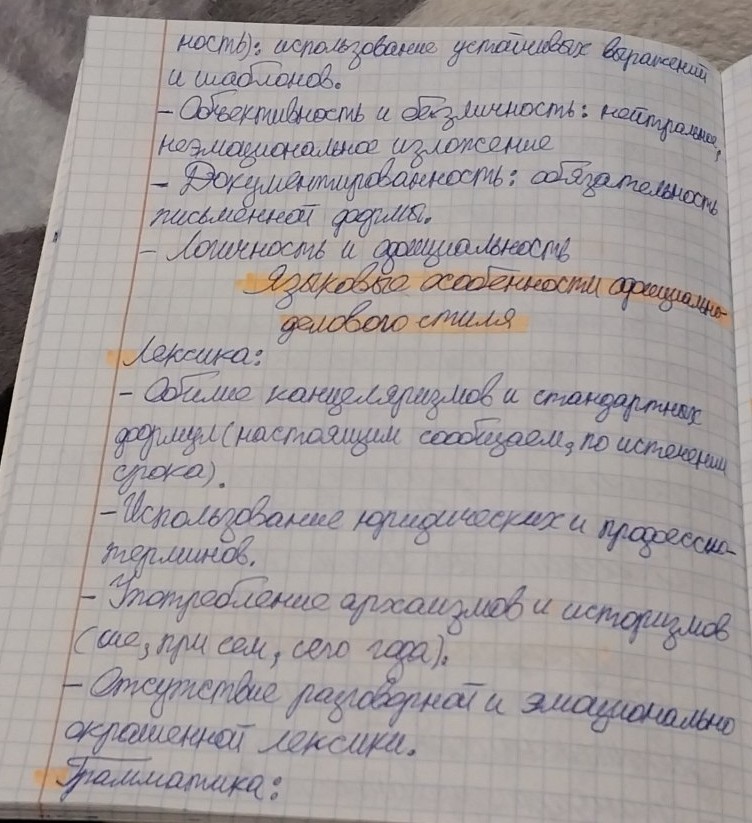 ность): использование устойчивых выражений
и шаблонов.
- Объективность и безличность: нейтральное,
неэмациональное изложение
- Документированность: обязательность
письменной формы.
- Логичность и официальность
Языковые особенности официально-
делового стиля
Лексика:
- Обилие канцеляризмов и стандартных
формул (настоящим сообщаем, по истечении
срока).
- Использование юридических и профессио-
терминов.
- Употребление архаизмов и историзмов
при сем, сего года).
- Отсутствие разговорной и эмационально
окрашенной лексики.
Грамматика: